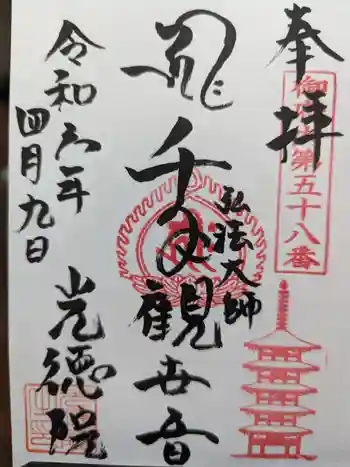 奉拝
第五十八番
弘法大師
千手観世音
令和六年
四月九日
光徳院